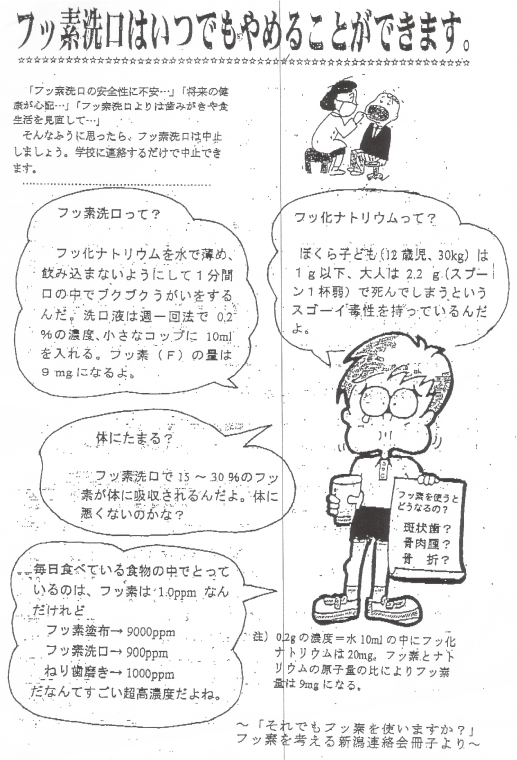 フッ素洗口はいつでもやめることができます。
「フッ素洗口の安全性に不安…」「将来の健
康が心配…」「フッ素洗口よりは歯みがきや食
生活を見直して…」
そんなふうに思ったら、フッ素洗口は中止
しましょう。学校に連絡するだけで中止でき
ます。
フッ素洗口って？
フッ化ナトリウムを水で薄め、
飲み込まないようにして１分間
口の中でブクブクうがいをする
んだ。洗口液は週一回法で 0.2
％の濃度、小さなコップに 10ml
を入れる。フッ素（F）の量は
９mgになるよ。
フッ化ナトリウムって？
ぼくら子ども（12歳児、30kg）は
１g以下、大人は 2.2 g（スプー
ン１杯弱）で死んでしまうという
スゴーイ毒性を持っているんだ
よ。
体にたまる？
フッ素洗口で 15 ～ 30 ％のフッ
素が体に吸収されるんだよ。体に
悪くないのかな？
フッ素を使うと
どうなるの？
斑状歯？
骨肉腫？
骨　折？
毎日食べている食物の中でとって
いるのは、フッ素は 1.0ppm なん
だけれど
フッ素塗布→ 9000ppm
フッ素洗口→ 900ppm
ねり歯磨き→ 1000ppm
だなんてすごい超高濃度だよね。
注）0.2gの濃度＝水10mlの中にフッ化
ナトリウムは20mg。フッ素とナト
リウムの原子量の比によりフッ素
量は9mgになる。
～「それでもフッ素を使いますか？」
フッ素を考える新潟連絡会冊子より～